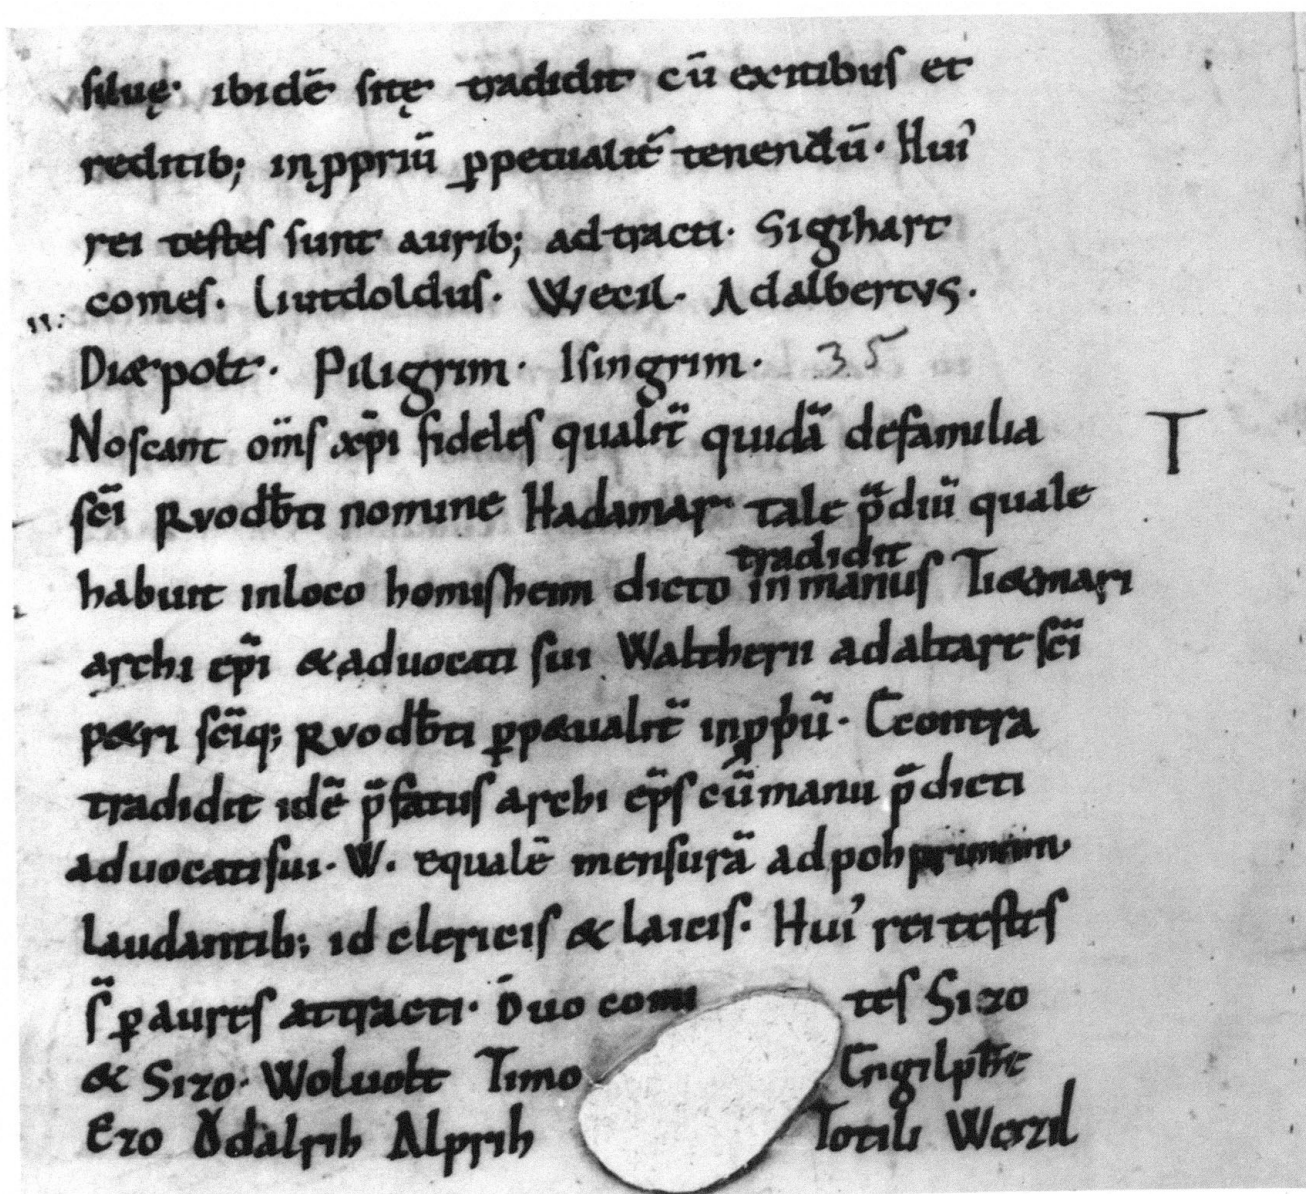 siluę· ibidē sitę tradidit cū exitibus et
reditib; inp̱priū p̱petualit̄ tenendū· Hui'
rei testes sunt aurib; adtracti· Sigihart
comes· Liutdoldus· VVecil· Adalbertus·
Diętpolt· Piligrim· Isingrim· 35
Noscant om̄s xp̄i fideles qualit̄ quidā defamilia T
sc̄i Rvodb̄ti nomine Hadamar· tale p̄diū quale
tradidit
habuit inloco homisheim dicto in manus Ti&mari
archi ep̄i &aduocati sui Waltherii adaltare sc̄i
p&ri sc̄iq; Rvodb̄ti p̱p&ualit̄ inp̱p̱iū· Econtra
tradidit idē p̄fatus archi ep̄s cū manu p̄dicti
aduocati sui· W· equalē mensurā adpoh
Laudantib; id clericis & laicis· Hui' rei testes
s̄ p̱ aures attracti· Duo comi tes Sizo
& Sizo· Woluolt Timo Engilpħt
Ezo Ödalrih Alprih Totili Wezil